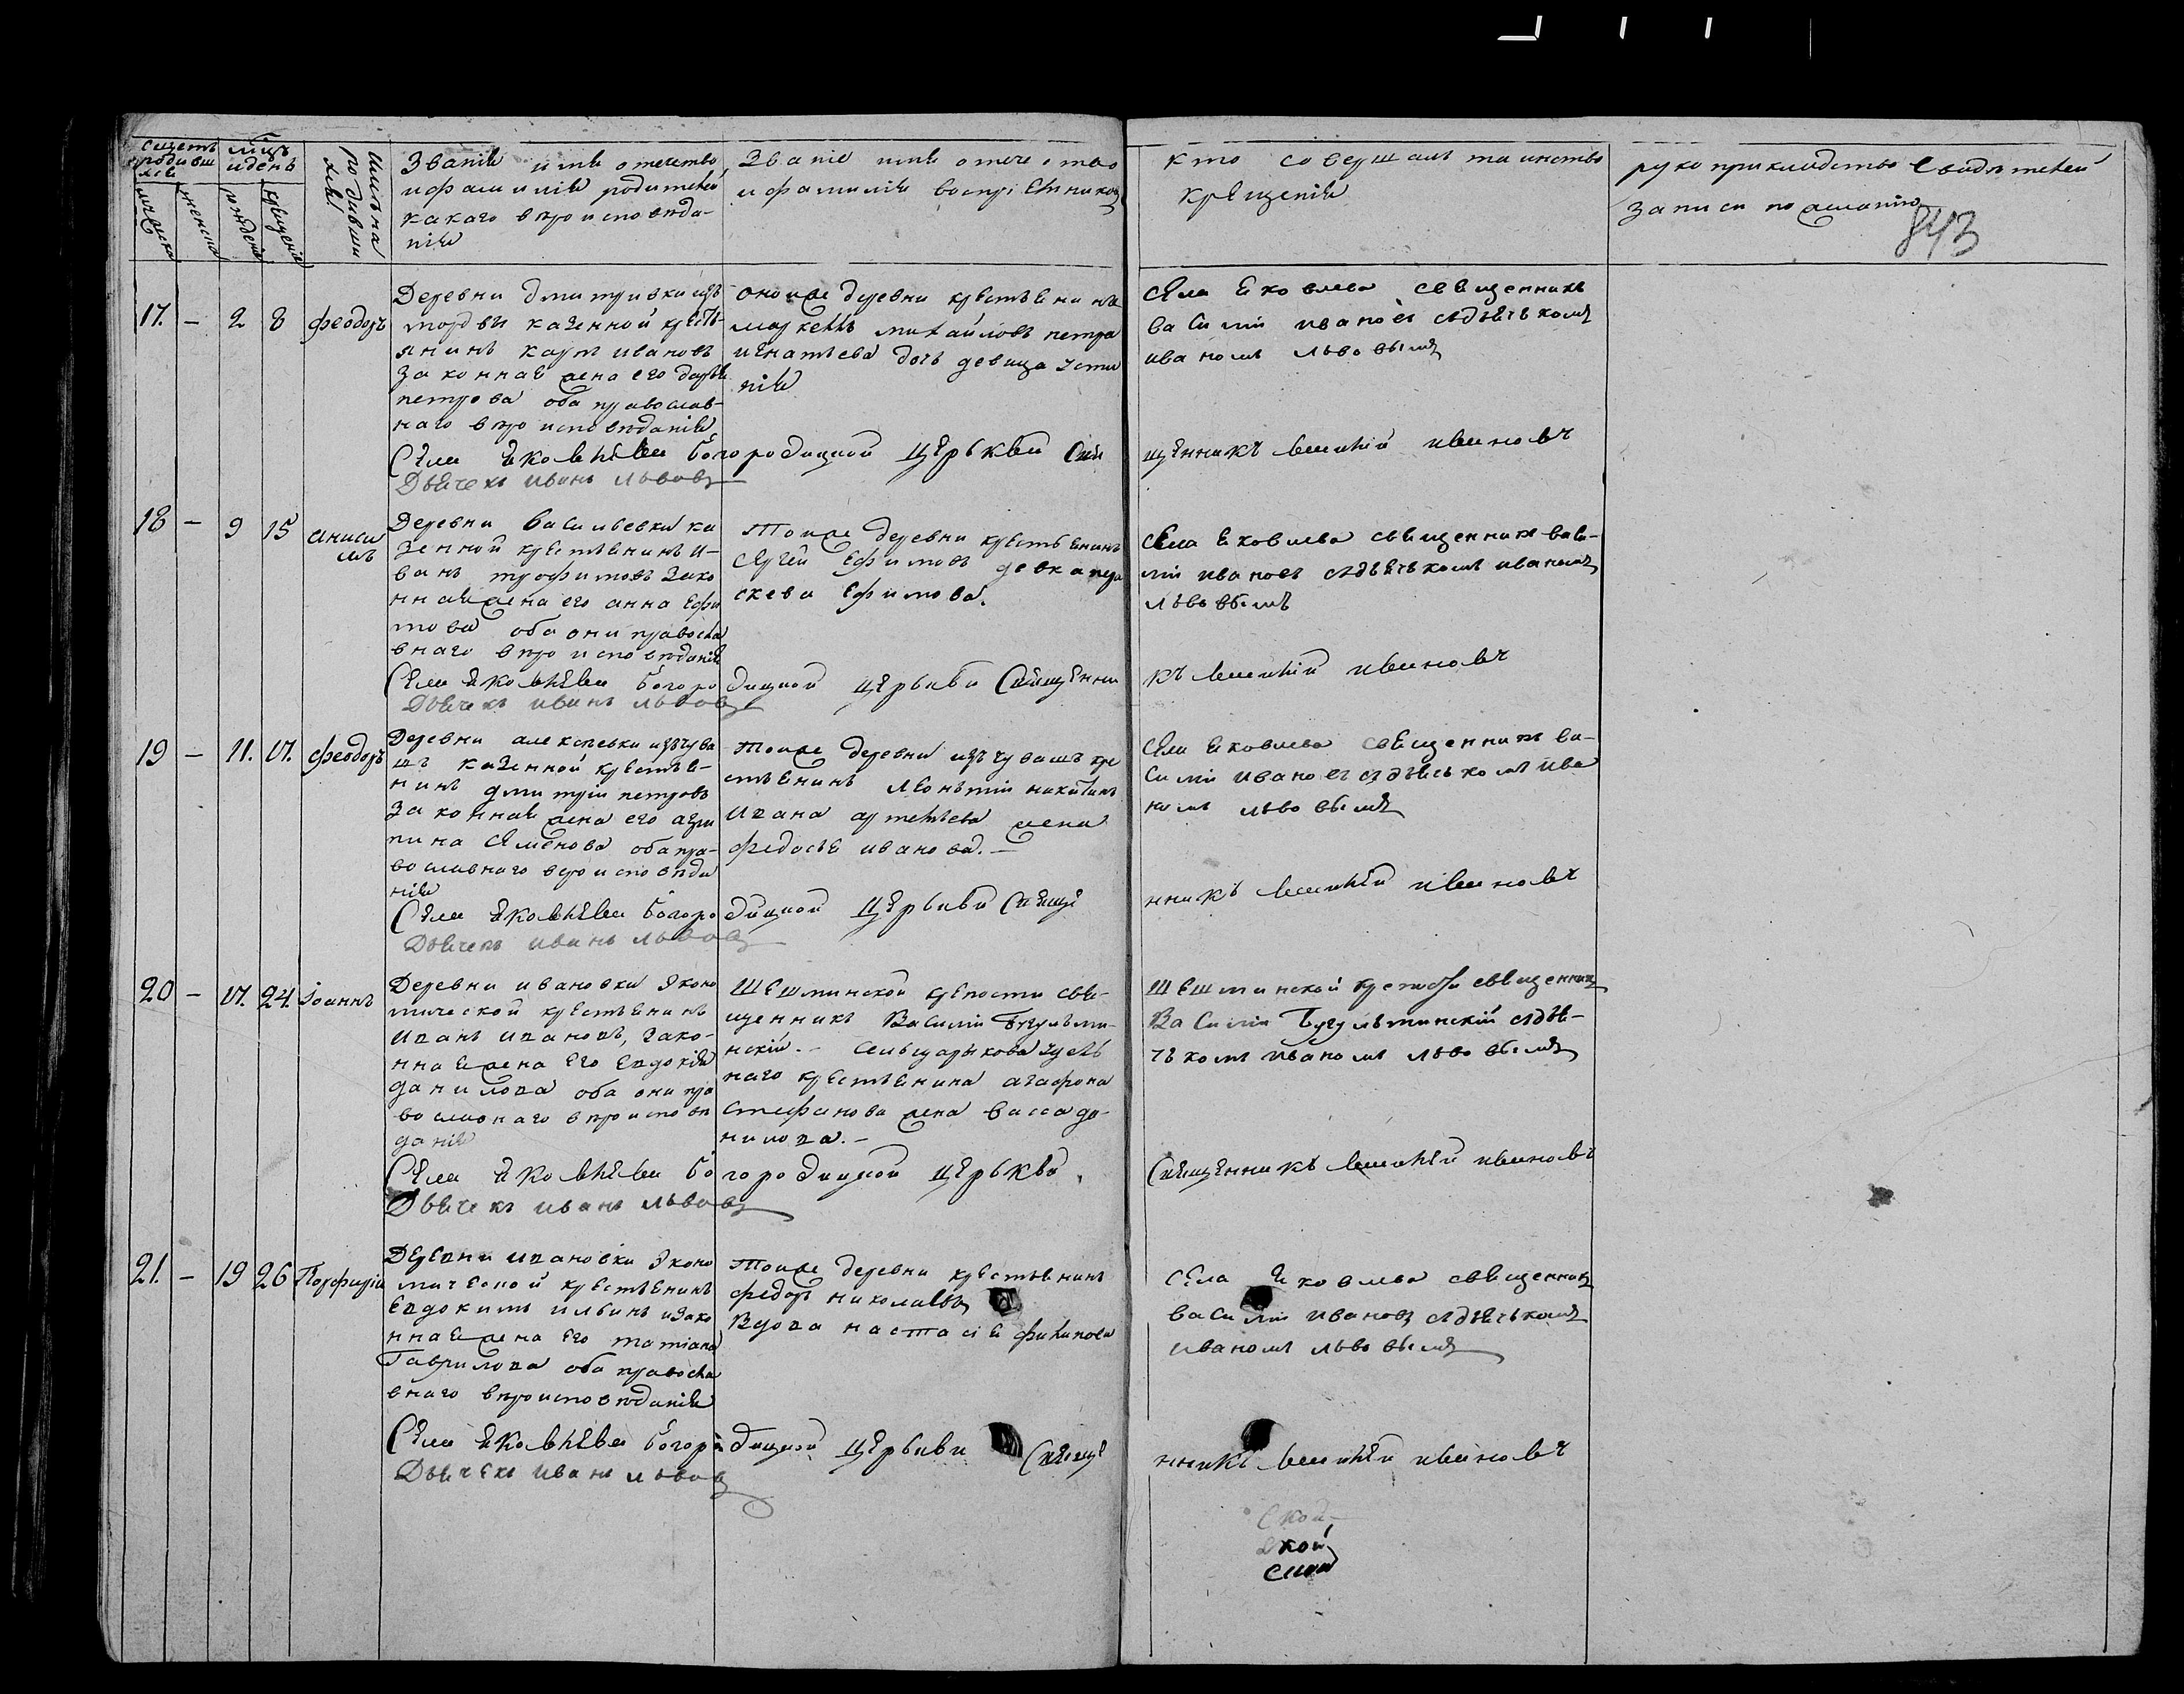 Счетъ родившихся
мцъ и день
мужеска
женска
рождения
крещения
Имяна родившихся
Званiя имя отечество
и фамилiя родителей
какаго вѣроисповѣда-
нiя
Званiе имя отечество
и фамилiя воспрiемников
кто совершалъ таинство
крещенiя
рукоприкладство свидѣтелей
записи по желанiю
843
17. — 2 8 феодоръ
Деревни дмитривки изъ
мордвы казенной крестъ-
янинъ карпъ ивановъ
законная жена его дарья
петрова оба православ-
наго вѣроисповѣданiя
оной же деревни крестьянинъ
маркелъ михайловъ петра
игнатьева дочь девица усти
нiя
села яковлева священникъ
василiй ивановъ сдьячькомъ
иваномъ львовымъ
Села Яковлева богородицкой церькви Свя
щенникъ василий ивановъ
Дьячекъ иванъ львовъ
18 — 9 15 Аниси
мъ
Деревни васильевки ка
зенной крестьянинъ и-
ванъ трофимовъ зако
нная жена его анна ефи
мова оба они правосла
внаго вѣроисповѣданiя
тоиже деревни крестьянинъ
сергей ефимовъ девка пра
скева ефимова.
села яковлева священник васи-
лiй ивановъ сдьячькомъ иваномъ
львовымъ
Села Яковлева богородицкой церькви Священни
къ василий ивановъ
Дьячекъ иванъ львовъ
19 — 11. 17. феодоръ
Деревни алексѣевки изъчува
шъ казенной крестья-
нинъ дмитрiй петровъ
законная жена его агри
пина семенова оба пра-
вославнаго вѣроисповѣда
нiя
тоиже деревни изъчувашъ кре
стьянинъ леонътiй никитинъ
ивана артемьева жена
федосья иванова. —
села яковлева священник ва-
силiй ивановъ сдьячькомъ ива
номъ львовымъ
Села Яковлева богородицкой церькви Свяще
нникъ василий ивановъ
Дьячекъ иванъ львовъ
20 — 17. 24. Iоаннъ
Деревни ивановки эконо
мической крестьянинъ
иванъ ивановъ, зако-
нная жена его евдокiя
данилова оба они пра
вославнаго вѣроисповѣ
данiя
шешминской крепости свя-
щенникъ василiй Бугульми-
нскiй. — села удель
наго крестьянина агафона
стефанова жена васса да-
нилова. —
шешминской крепости священник
василiй Бугульминскiй сдья-
чькомъ иваномъ львовымъ
Села Яковлева богородицкой церькви.
Священникъ василий ивановъ
Дьячекъ иванъ львовъ
21. — 19 26 Порфирiй
Деревни ивановки эконо
мической крестьянинъ
евдокимъ ильинъ изако
нная жена его татiана
Гаврилова оба правосла
внаго вѣроисповѣданiя
тоиже деревни крестьянинъ
федоръ николаевъ
вдова настасiя филипова
села яковлева священник
василiй ивановъ сдьячькомъ
иваномъ львовымъ
Села Яковлева богородицкой церькви Свяще
нникъ василий ивановъ
Дьячекъ иванъ львовъ
ской